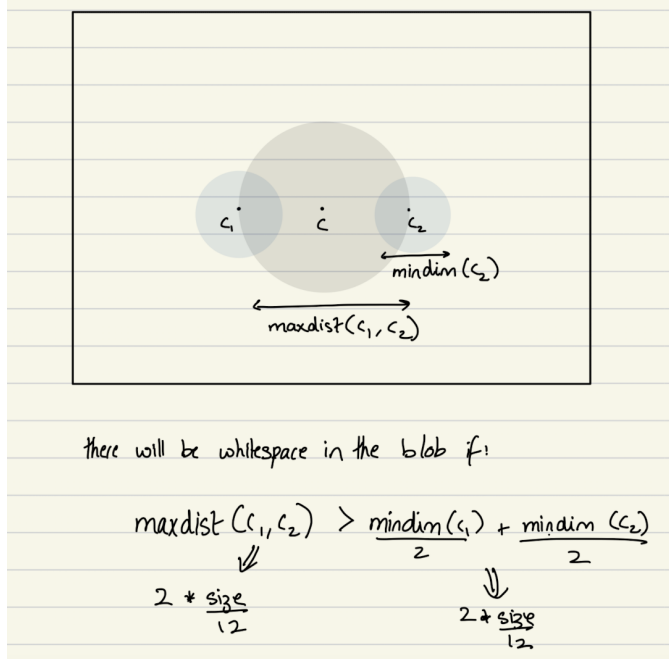 c₁ c c₂
mindim(c₂)
maxdist(c₁, c₂)
there will be whitespace in the blob if:
maxdist (c₁, c₂) > mindim(c₁)/2 + mindim (c₂)/2
2 * size/12
2 * size/12